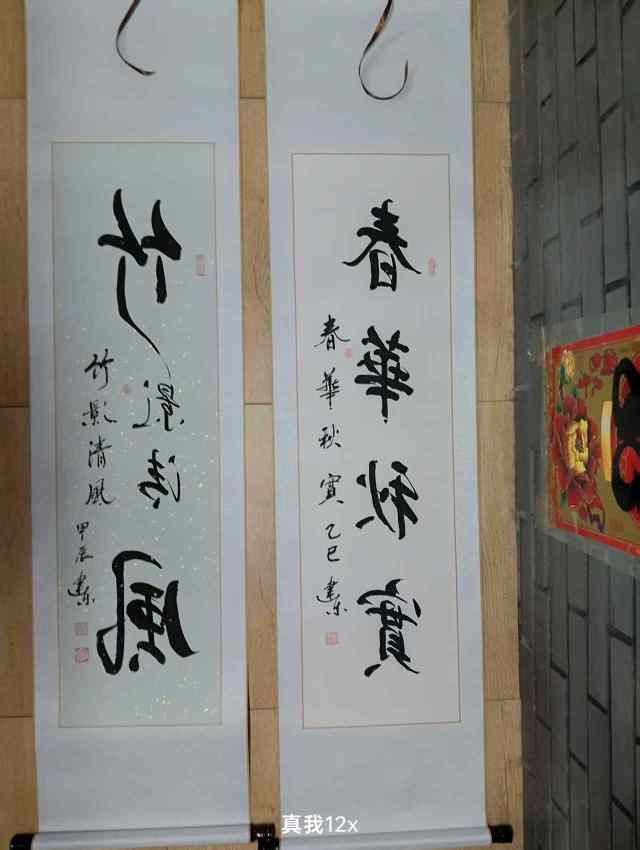 春華秋實
春華秋實 乙巳 建东
竹影清風
竹影清風 甲辰 建东
真我12x